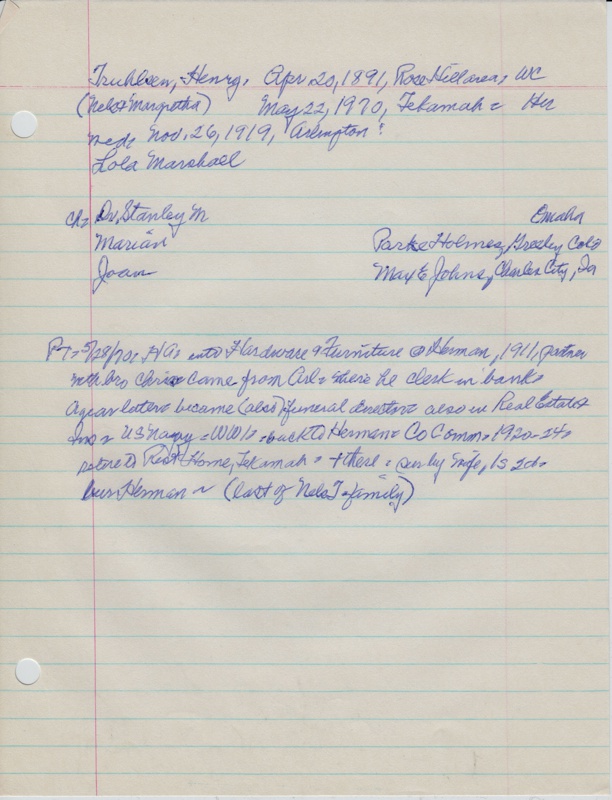 Truhlsen, Henry, Apr. 20, 1891, Rose Hill area, WC
(Nels & Margretha) May 22, 1970, Tekamah = Her
med, Nov. 26, 1919, Arlington:
Lola Marshall
ch: Dr. Stanley M Omaha
Marian Parke Holmes, Greeley Colo
Joan Max E Johns, Charles City, Ia
PT = 5/28/70: HG: into Hardware & Furniture @ Herman, 1911, partner
with bro Chris came from Arl = where he clerk in bank:
A year later = became (also) funeral director = also in Real Estate &
Ins = US Navy = WW I = back to Herman = Co Comm = 1920-24:
retire to Rest Home, Tekamah = + there = sur by wife, 1s 2d:
bur Herman ~ (last of Nels T family)